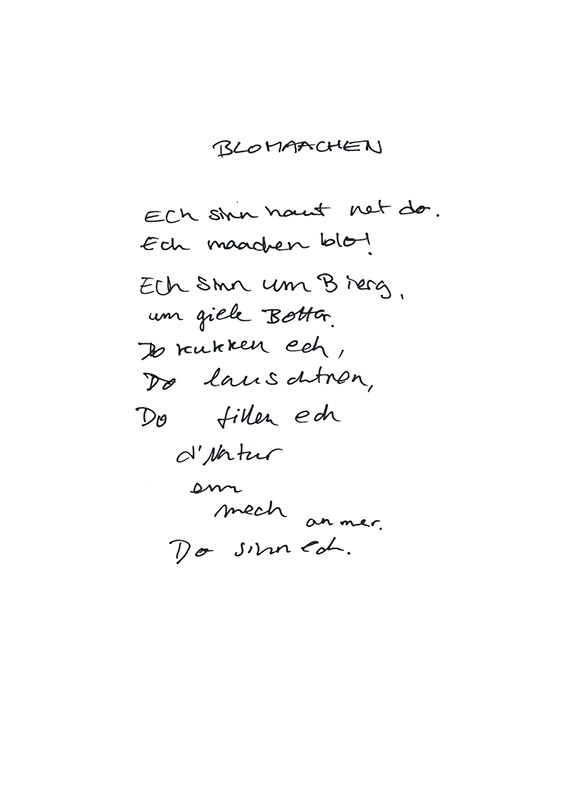 BLOMAACHEN
Ech sinn haut net do.
Ech maachen blo!
Ech sinn um Bierg,
um giele Botter.
Do kukken ech,
Do lauschtren,
Do fillen ech
d'Natur
em
mech an mer.
Do sinn ech.